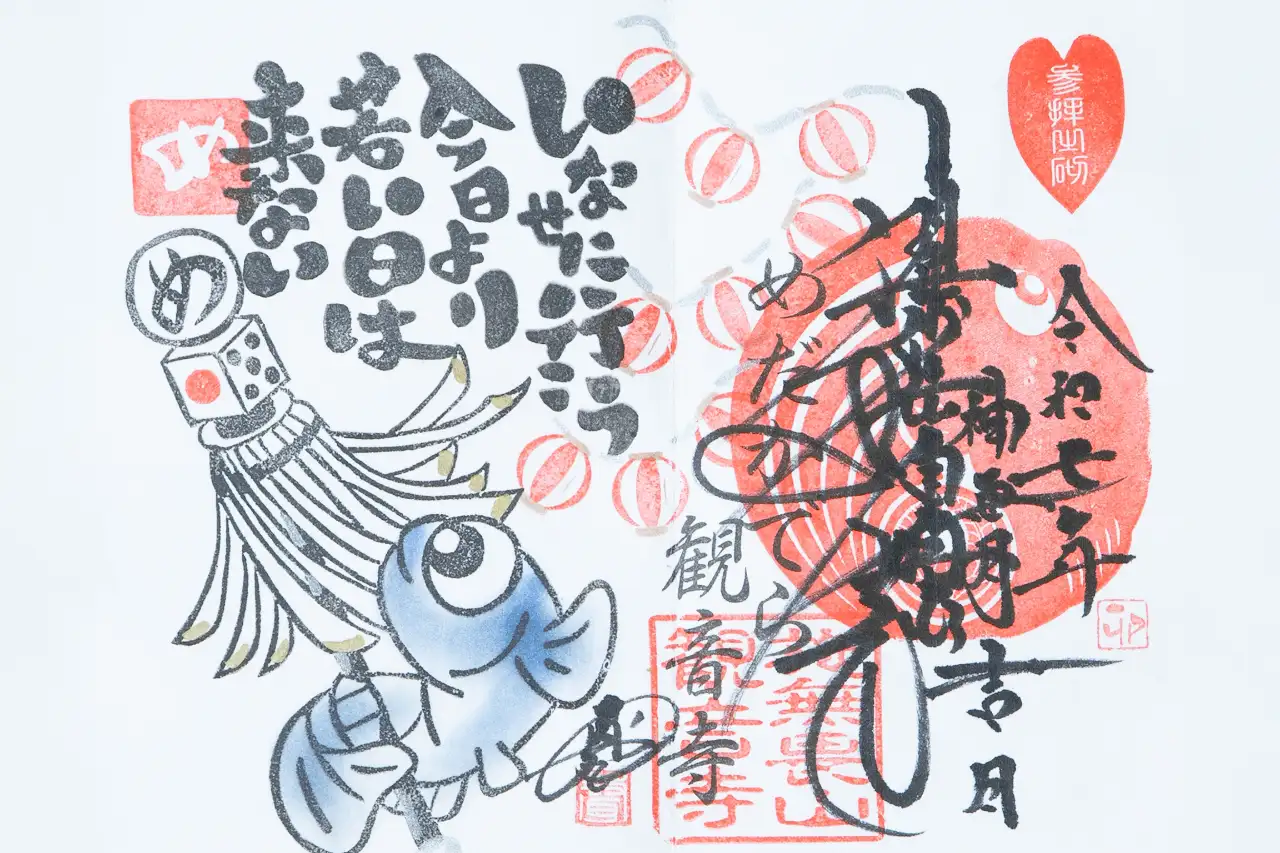 参拝之砌
令和七年
吉月
めだかでら
観音寺
施無畏山
観音寺
いなせに行こう
今日より
若い日は
来ない
め
め